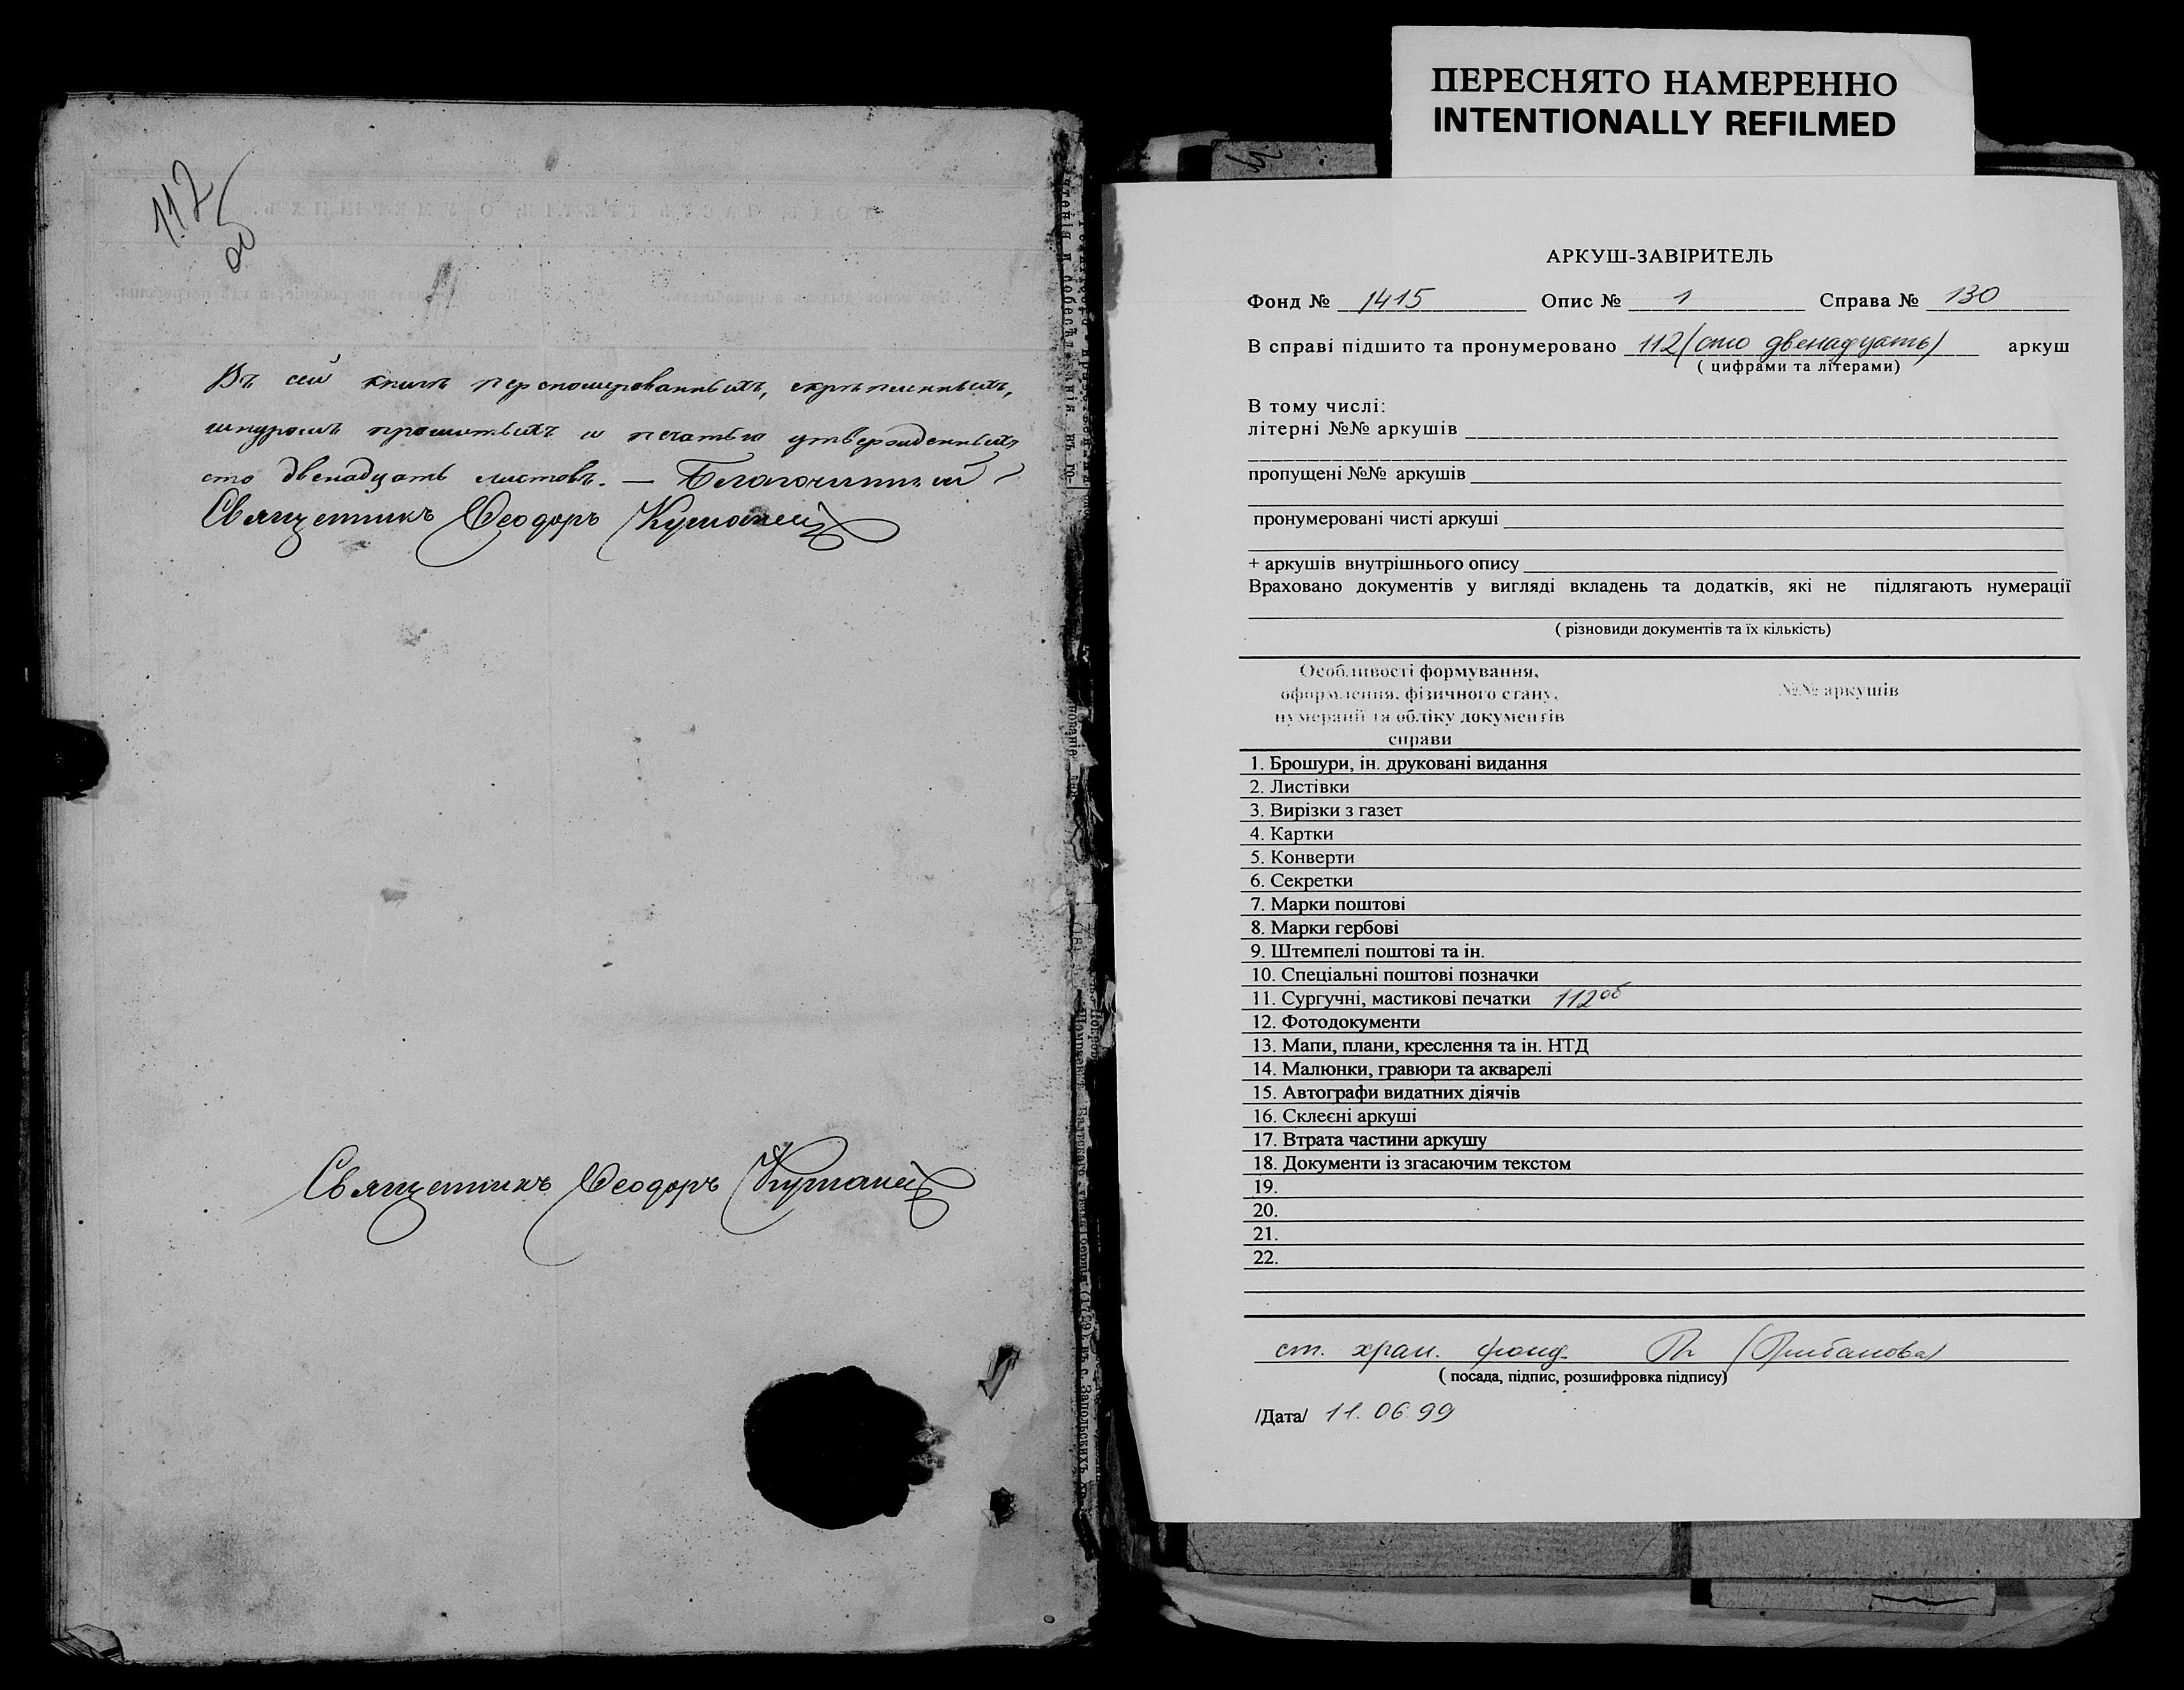 112
об
Въ сей книгѣ перенумерованныхъ, скрѣпленныхъ,
шнуромъ прошитыхъ и печатью утвержденныхъ
сто двенадцать листовъ. — Благочинный
Священникъ Ѳеодоръ
Священникъ Ѳеодоръ
ПЕРЕСНЯТО НАМЕРЕННО
INTENTIONALLY REFILMED
АРКУШ-ЗАВІРИТЕЛЬ
Фонд № 1415 Опис № 1 Справа № 130
В справі підшито та пронумеровано 112 (сто двенадцать) аркуш
( цифрами та літерами)
В тому числі:
літерні №№ аркушів
пропущені №№ аркушів
пронумеровані чисті аркуші
+ аркушів внутрішнього опису
Враховано документів у вигляді вкладень та додатків, які не підлягають нумерації
( різновиди документів та їх кількість)
Особливості формування,
оформлення, фізичного стану, №№ аркушів
нумерації та обліку документів
справи
1. Брошури, ін. друковані видання
2. Листівки
3. Вирізки з газет
4. Картки
5. Конверти
6. Секретки
7. Марки поштові
8. Марки гербові
9. Штемпелі поштові та ін.
10. Спеціальні поштові позначки
11. Сургучні, мастикові печатки 112об
12. Фотодокументи
13. Мапи, плани, креслення та ін. НТД
14. Малюнки, гравюри та акварелі
15. Автографи видатних діячів
16. Склеєні аркуші
17. Втрата частини аркушу
18. Документи із згасаючим текстом
19.
20.
21.
22.
ст. хран. фонд.
( посада, підпис, розшифровка підпису)
/Дата/ 11.06.99